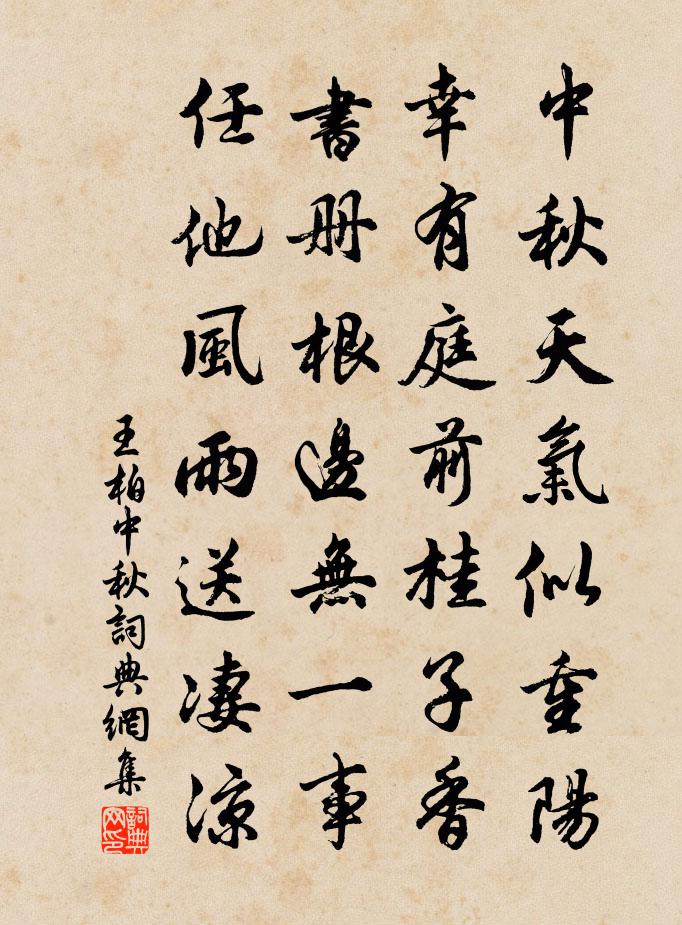 中秋天氣似重陽
幸有庭前桂子香
書册根邊無一事
任他風雨送凄涼
王柏中秋詞典網集
詞典網印